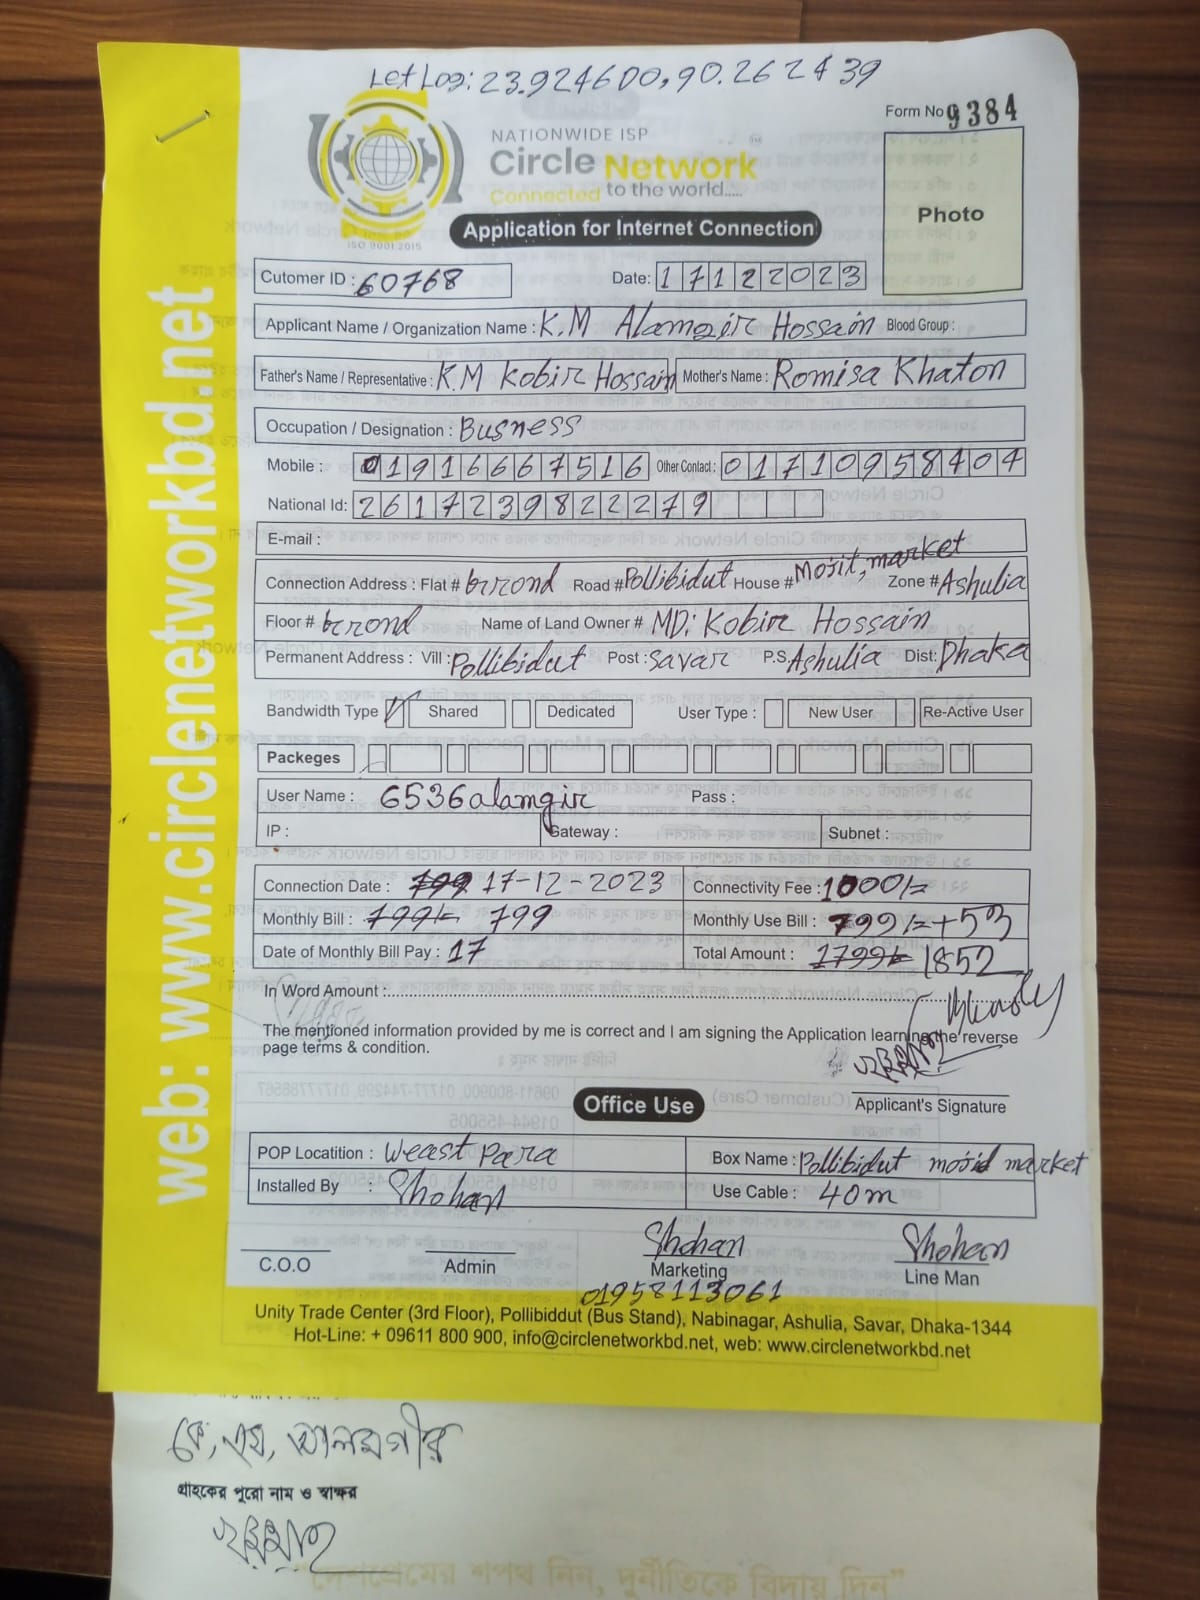 Let Log: 23.924600, 90.262439
Form No 9384
NATIONWIDE ISP
Circle Network
Connected to the world.....
ISO 9001:2015
Application for Internet Connection
Photo
Cutomer ID : 60768 Date: 17122023
Applicant Name / Organization Name : K.M Alamgir Hossain Blood Group :
Father's Name / Representative : K.M Kobir Hossain Mother's Name : Romisa Khaton
Occupation / Designation : Busness
Mobile : 01916667516 Other Contact : 01710958404
National Id: 2617239822279
E-mail :
Connection Address : Flat # brrond Road # Pollibidut House # Mosit, market Zone # Ashulia
Floor # brrond Name of Land Owner # MD: Kobir Hossain
Permanent Address : Vill : Pollibidut Post : Savar P.S Ashulia Dist: Dhaka
Bandwidth Type Shared Dedicated User Type : New User Re-Active User
Packeges
User Name : 6536alamgir Pass :
IP : Gateway : Subnet :
Connection Date : 799 17-12-2023 Connectivity Fee : 1000/=
Monthly Bill : 799/= 799 Monthly Use Bill : 799/=+53
Date of Monthly Bill Pay : 17 Total Amount : 1799/= 1852
In Word Amount :
The mentioned information provided by me is correct and I am signing the Application learning the reverse
page terms & condition.
Applicant's Signature
Office Use
POP Locatition : Weast Para Box Name : Pollibidut mosid market
Installed By : Shohan Use Cable : 40m
Shohan Shohan
C.O.O Admin Marketing Line Man
01958113061
Unity Trade Center (3rd Floor), Pollibiddut (Bus Stand), Nabinagar, Ashulia, Savar, Dhaka-1344
Hot-Line: + 09611 800 900, info@circlenetworkbd.net, web: www.circlenetworkbd.net
web: www.circlenetworkbd.net
কে, এম, আলমগীর
গ্রাহকের পুরো নাম ও স্বাক্ষর
"দেশপ্রেমের শপথ নিন, দুর্নীতিকে বিদায় দিন"